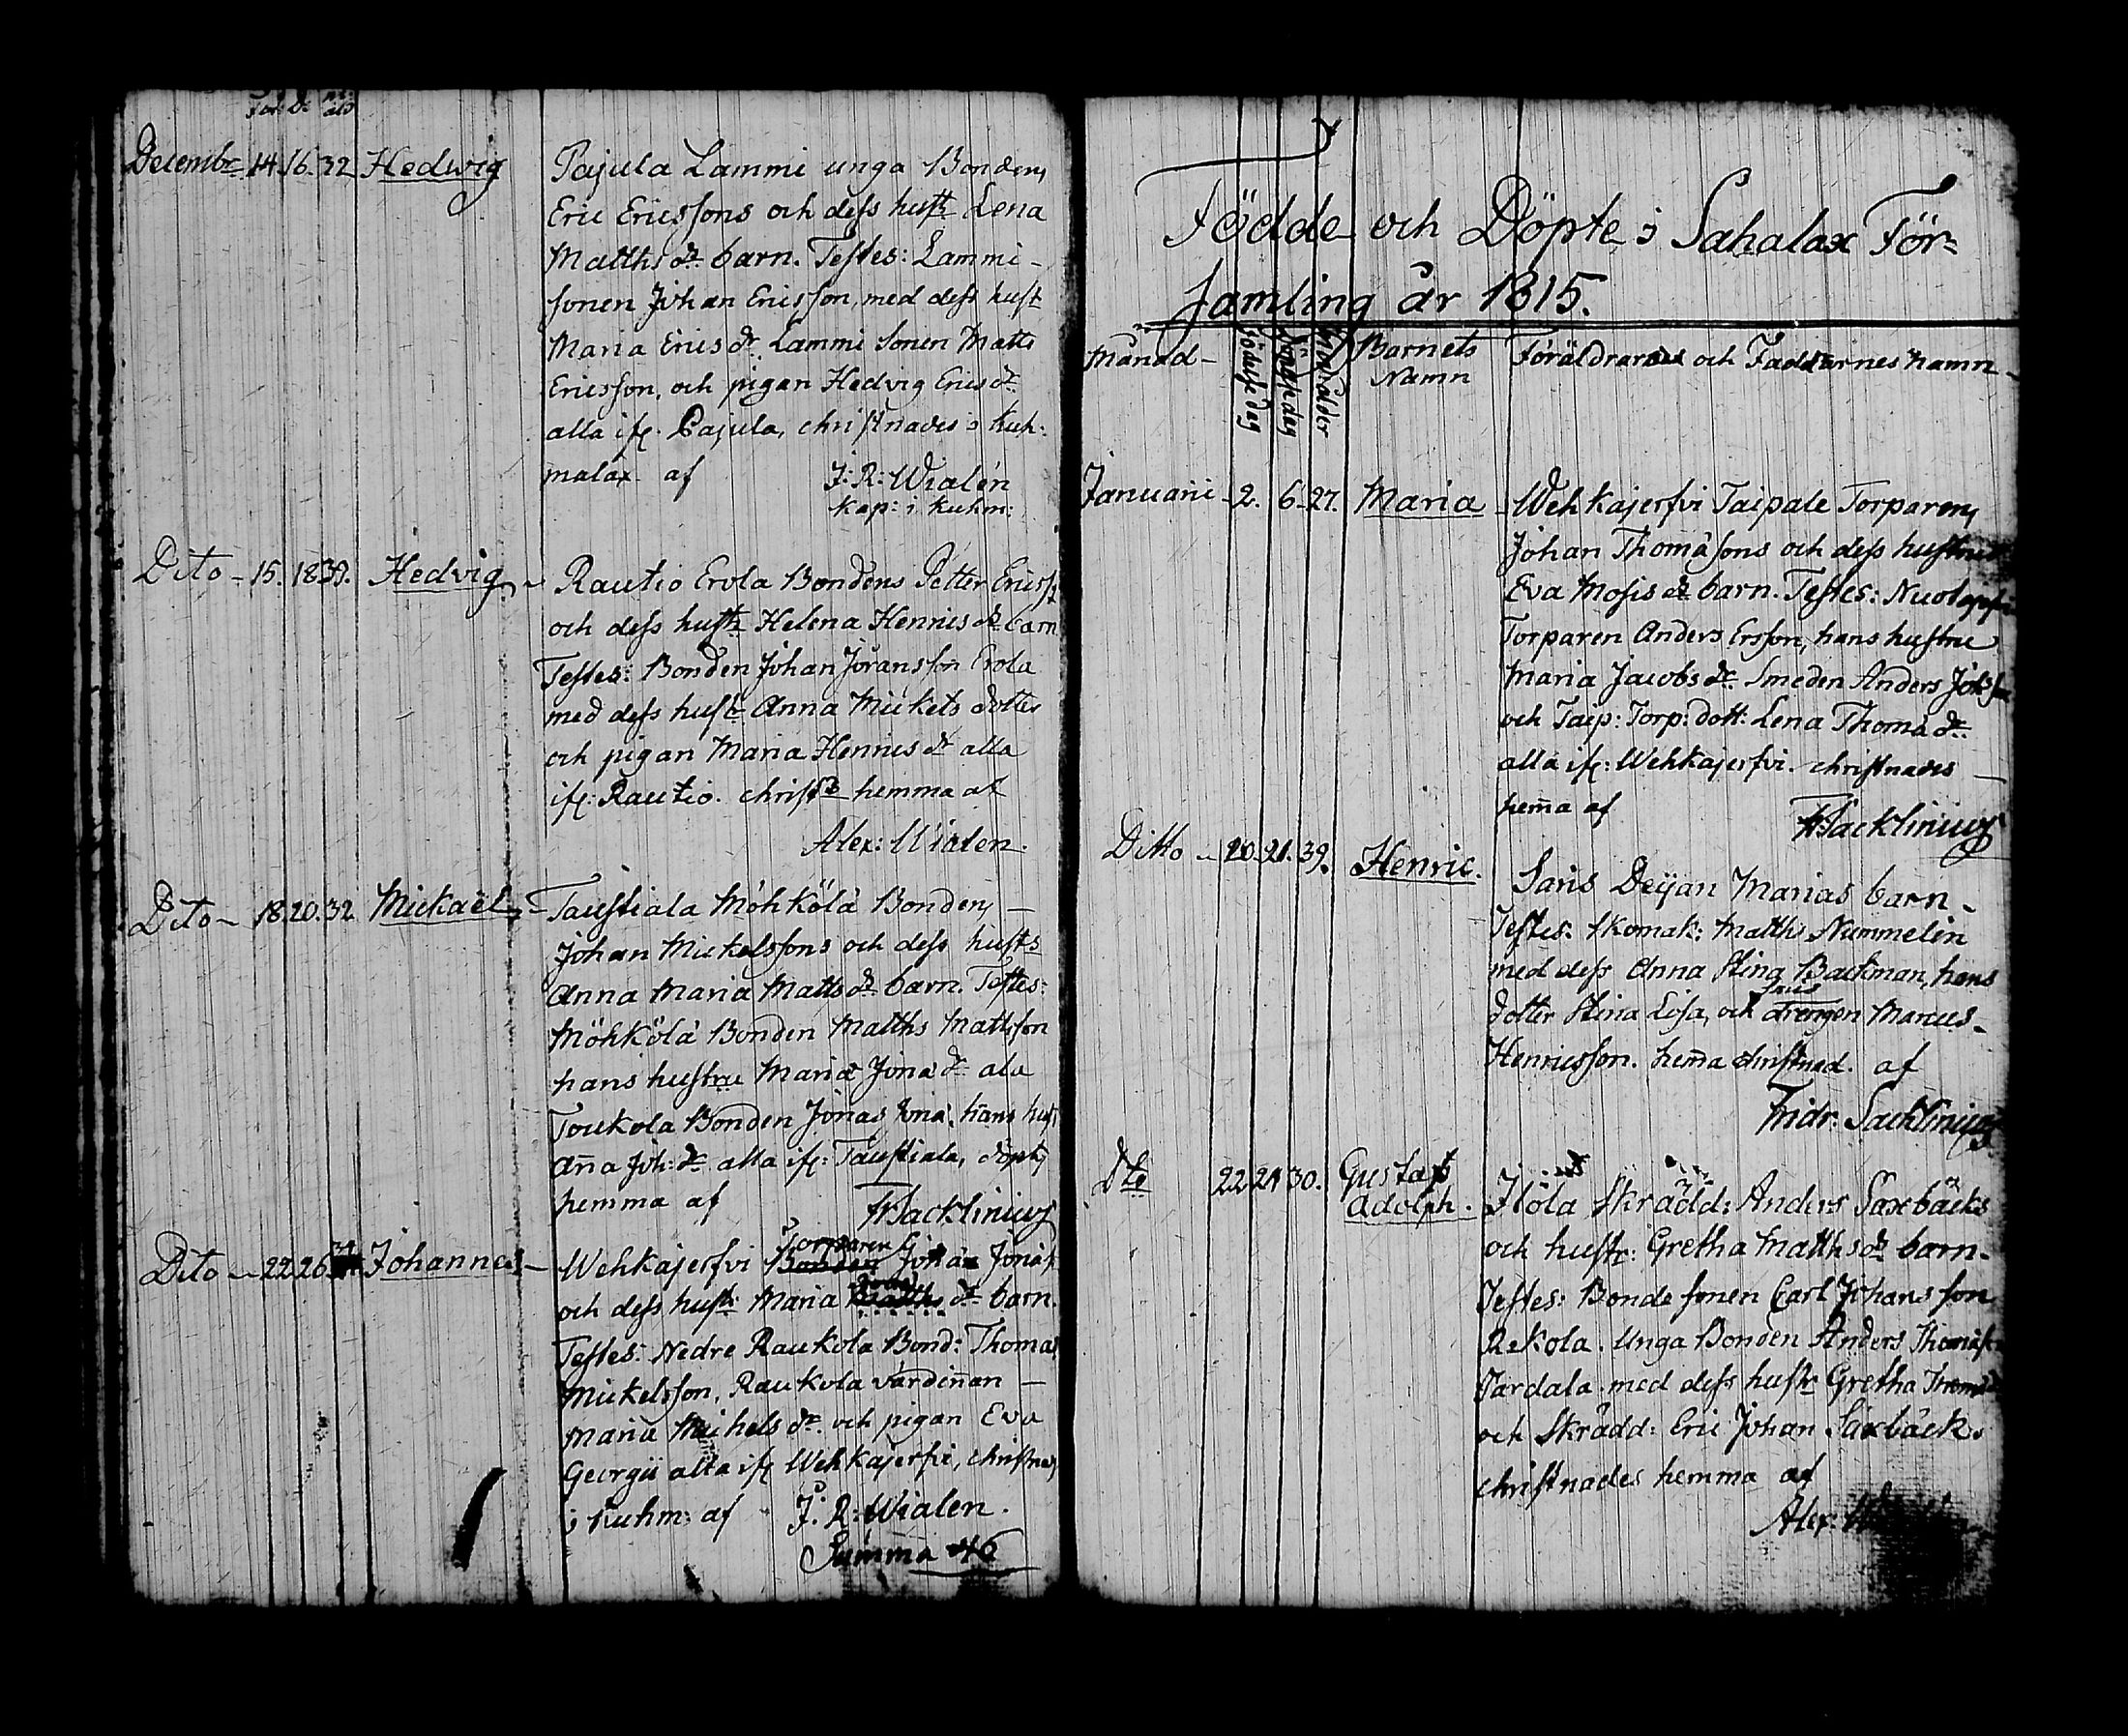 Decembr 14. 16. 32 Hedwig
Pajula Lammi unga Bondens
Eric Ericssons och dess hustr Lena
Matths dr barn. Testes: Lammi-
sonen Johan Ericsson, med dess hust
Maria Erics dr. Lammi Sonen Matts
Ericsson, och pigan Hedvig Erics dr.
alla ifr. Pajula, christnades i Kuh:
malax af J: R: Wialén
Kap: i Kuhm:
Dito - 15. 18 39. Hedvig -
Rautio Erola Bondens Petter Ericss
och dess hustr Helena Henrics dr barn
Testes: Bonden Johan Jöransson Erola
med dess hustr Anna Mickels dotter
och pigan Maria Henrics dr alla
ifr: Rautio. christ hemma af
Alex: Wialen.
Dito - 18. 20. 32 Mickaël -
Taustiala Möhkölä Bondens
Johan Mickelssons och dess hustrs
Anna Maria Matts dr barn. Testes:
Möhkölä Bonden Matths Mattsson
hans hustru Maria Jona dr ala
Toukola Bonden Jonas Jona. hans hust
Anna Joh: dr. alla ifr: Taustiala, döpt
hemma af FrSacklinius
Dito - 22 26 Johannes -
Torparen
Wehkajerfvi Bonden Johan
och dess hustr Maria dr barn.
Testes: Nedre Raukola Bond: Thomas
Mickelsson, Raukola värdinnan
Maria Michels dr. och pigan Eva
Georgii alla ifr Wehkajerfvi, christnad
i Kuhm: af J. R: Wialen.
Summa 46
Födde och Döpte i Sahalax För-
samling år 1815.
Månad - Födelsedag Döpelsedag Moderålder Barnets Namn Föräldrarnes och Faddrarnes Namn -
Januarii - 2. 6. 27. Maria -
Wehkajerfvi Taipale Torparens
Johan Thomasons och dess hustrus
Eva Mosis dr barn. Testes:
Torparen Anders Ersson, hans hustru
Maria Jacobs dr. Smeden Anders
och Taip: Torp: dott: Lena Thoma dr.
alla ifr: Wehkajerfvi. christnades
hemma af FrSacklinius
Ditto - 20. 21. 39. Henric.
Saris Deijan Marias barn -
Testes: Skomak: Matths Nummelin
med dess Anna Stina Backman, hans
dotter Stina Lisa, och drengen Marcus
Henricsson. hemma christnad. af
Fridr: Sacklinius
Dto 22 24 30. Gustaf
Adolph.
Skrädd: Anders Saxbäcks
och hustr: Gretha Matths dr barn.
Testes: Bonde sonen Carl Johansson
Rekola. Unga Bonden Anders
Pardala med dess hustr Gretha
och Skrädd: Eric Johan Saxbäck.
christnades hemma af
Alex: